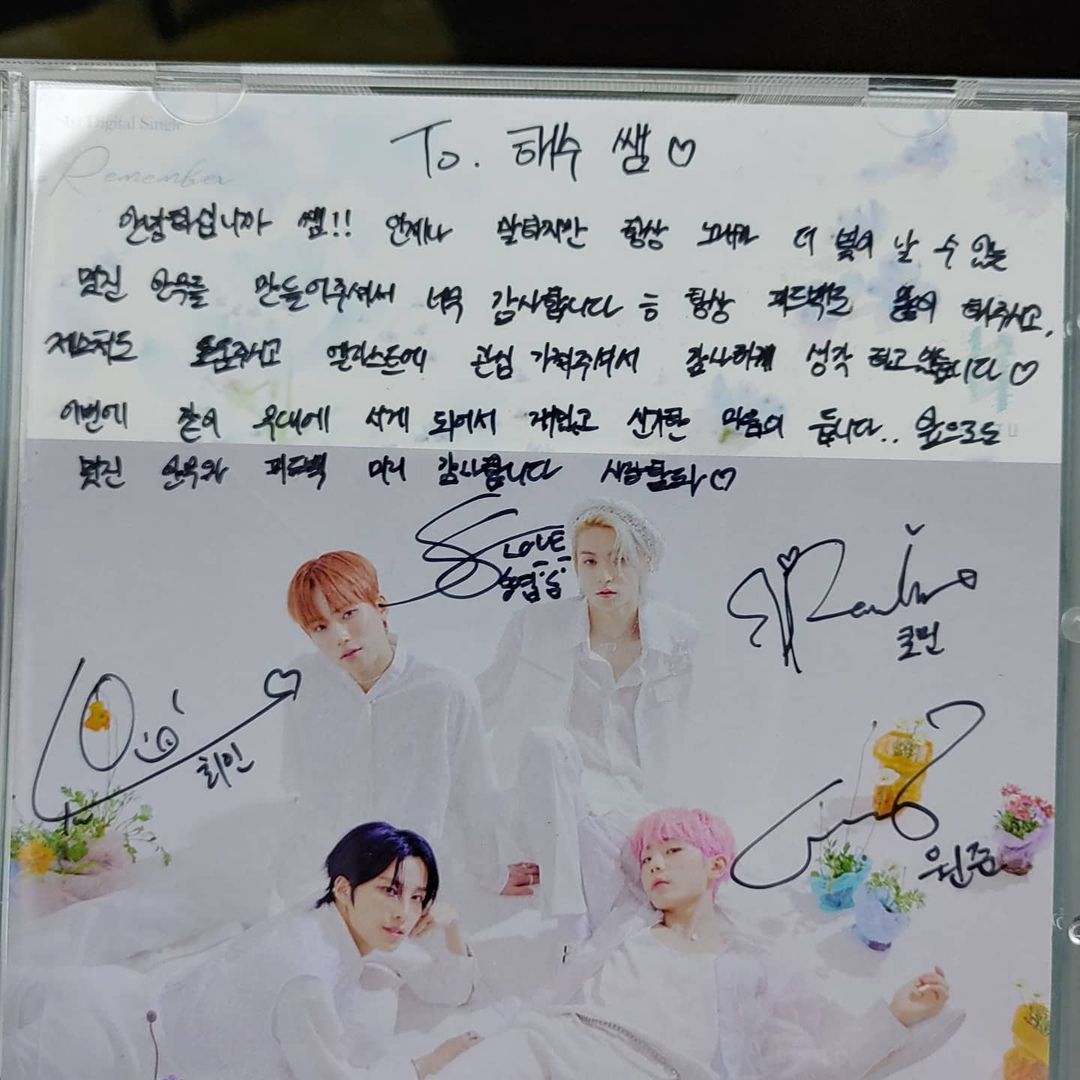 1st Digital Single
Remember
To. 태수 쌤♡
안녕하십니까 쌤!! 언제나 말하지만 항상 노래가 더 빛이 날 수 있는
멋진 안무를 만들어주셔서 너무 감사합니다 항상 피드백도 많이 해주시고,
제스처도 도움주시고 엘라스트에 관심 가져주셔서 감사하게 생각 하고 있습니다♡
이번에 같이 무대에 서게 되어서 재밌고 신기한 마음이 듭니다.. 앞으로도
멋진 안무와 피드백 미리 감사합니다 사랑합니다♡
LOVE
승엽
로민
최인
원준